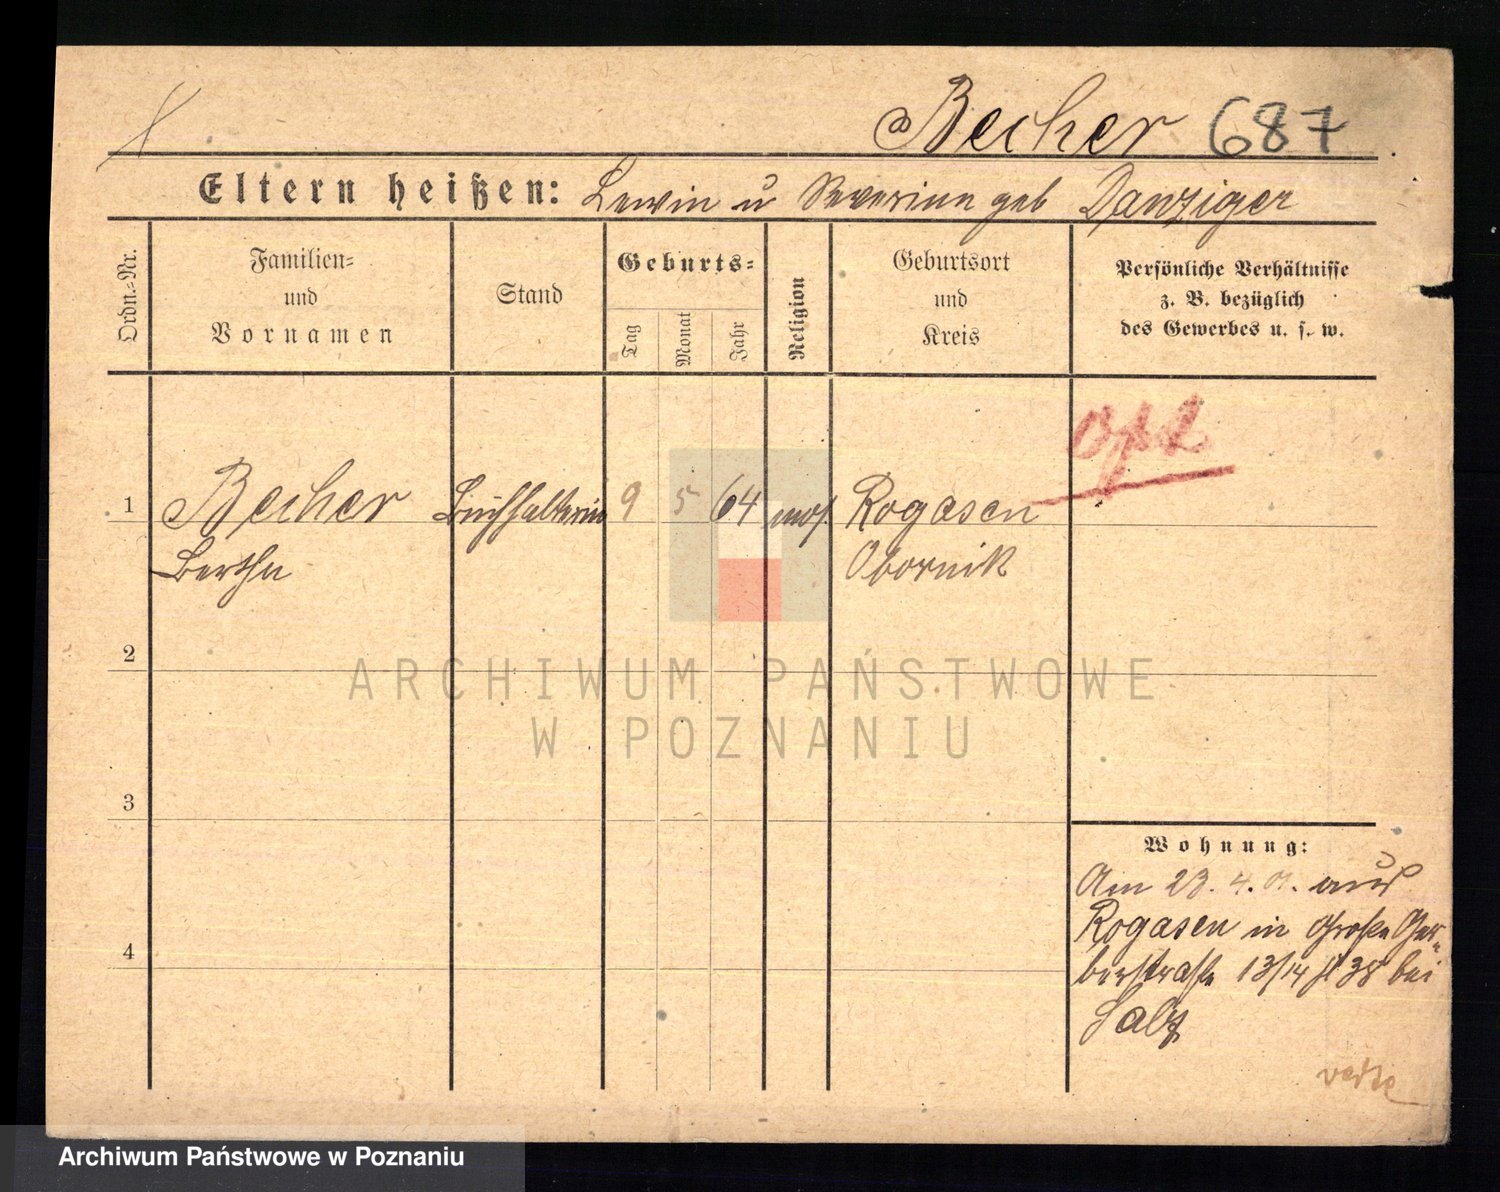 Becher 687
Eltern heißen: Lewin u Severine geb Danziger
Ordn.-Nr.
Familien-
und
Vornamen
Stand
Geburts-
Tag
Monat
Jahr
Religion
Geburtsort
und
Kreis
Persönliche Verhältnisse
z. B. bezüglich
des Gewerbes u. s. w.
1 Becher Buchhalterin 9 5 64 mos. Rogasen
Bertha Obornik
2
3
4
ARCHIWUM PAŃSTWOWE
W POZNANIU
Wohnung:
Am 23. 4. 01. aus
Rogasen in Große Ger-
berstraße 13/14 bei
Archiwum Państwowe w Poznaniu